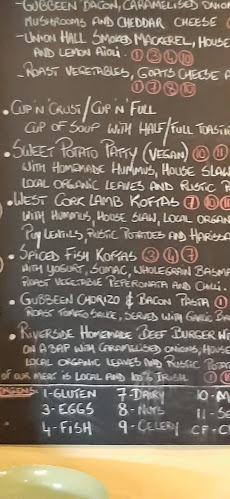 -Gubbeen Bacon, Caramelised Onion
Mushrooms and Cheddar Cheese
-Union Hall Smoked Mackerel, House
and Lemon Aioli. 1 3 4 10
-Roast Vegetables, Goats Cheese
1 7 8 10
• Cup 'n' Crust / Cup 'n' Full
Cup of Soup with Half/Full Toastie
• Sweet Potato Patty (Vegan) 10 11
with Homemade Hummus, House Slaw
Local Organic Leaves and Rustic P
• West Cork Lamb Koftas 7 10 11
with Hummus, House Slaw, Local Organ
Puy Lentils, Rustic Potatoes and Harissa
• Spiced Fish Koftas 3 4 7
with Yogurt, Sumac, Wholegrain Basma
Roast Vegetable Peperonata and Chilli.
• Gubbeen Chorizo & Bacon Pasta 1
Roast Tomato Sauce, Served with Garlic
• Riverside Homemade Beef Burger W
on a Bap with Caramelised Onions, House
Local Organic Leaves and Rustic Potat
of our meat is local and 100% Irish 1
1-Gluten 7-Dairy 10-M
3-Eggs 8-Nuts 11-Se
4-Fish 9-Celery CF-C